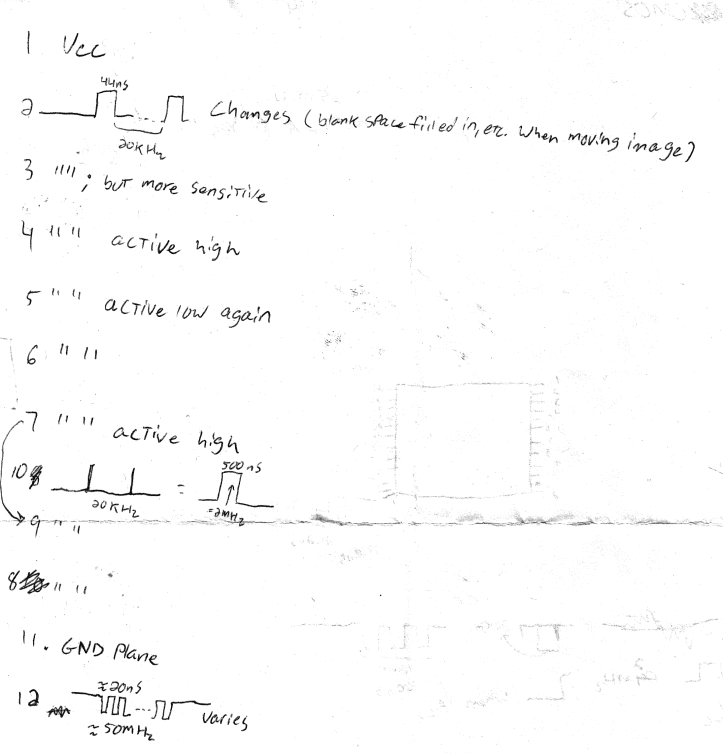 1 Vcc
44ns
2 Changes (blank space filled in, etc. when moving image)
20KHz
3 "" ; but more sensitive
4 " " active high
5 " " active low again
6 " "
7 " " active high
10 = 500ns
20KHz =2MHz
9 " "
8 " "
11. GND Plane
≈20ns
12 ... varies
≈50MHz